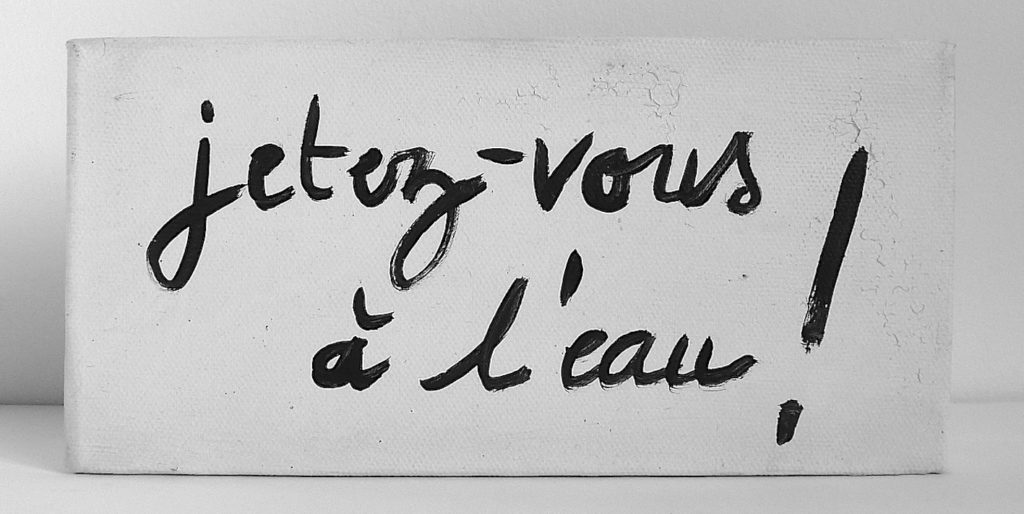 jetez-vous
à l'eau !